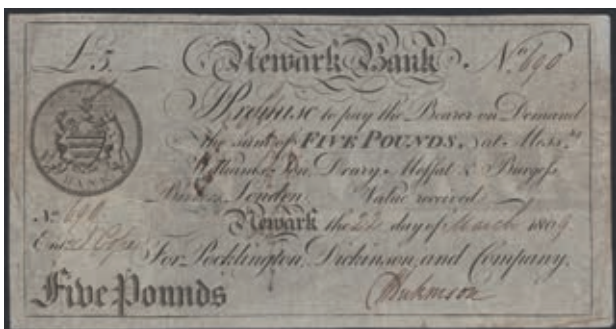 £5. Newark Bank. No. 690
I Promise to pay the Bearer on Demand
the sum of FIVE POUNDS, at Messrs.
Son, Drury Moffat & Burgess
Bankers, London. Value received
No. 690 Newark the 22 day of March 1809
Entd.
For Pocklington, Dickinson, and Company.
Five Pounds Dickinson
BANK